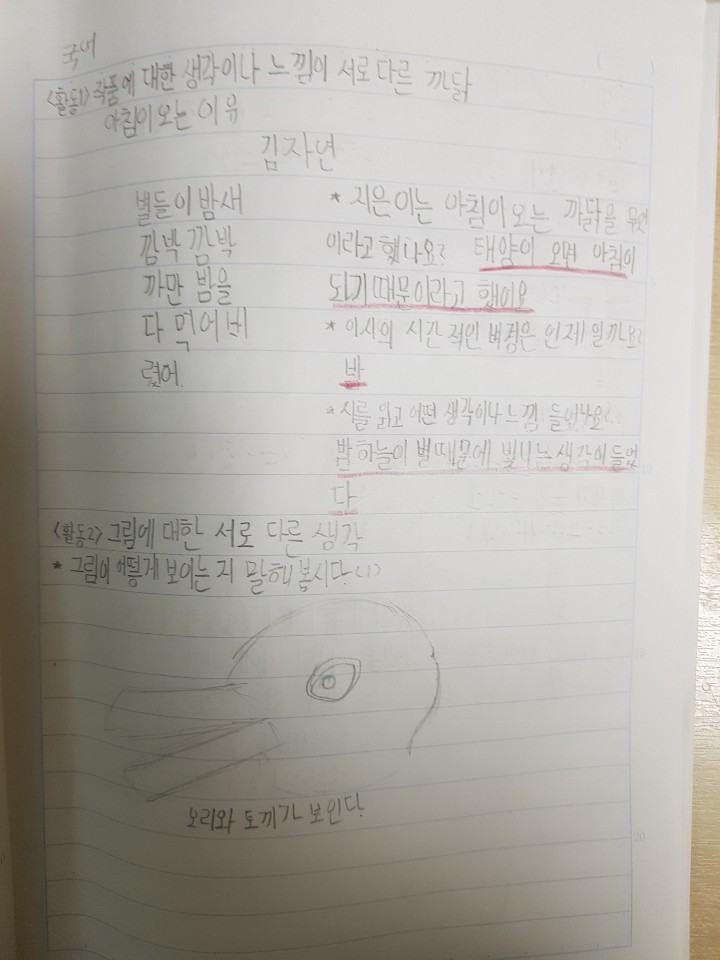 국어
<활동1> 작품에 대한 생각이나 느낌이 서로 다른 까닭
아침이 오는 이유
김자연
별들이 밤새
깜박깜박
까만 밤을
다 먹어버
렸어.
* 지은이는 아침이 오는 까닭을 무엇
이라고 했나요? 태양이 오면 아침이
되기 때문이라고 했어요
* 이시의 시간적인 배경은 언제일까요?
밤
* 시를 읽고 어떤 생각이나 느낌 들었나요?
밤하늘이 별때문에 빛나는 생각이 들었
다
<활동2> 그림에 대한 서로 다른 생각
* 그림이 어떻게 보이는 지 말해 봅시다.(1)
오리와 토끼가 보인다.